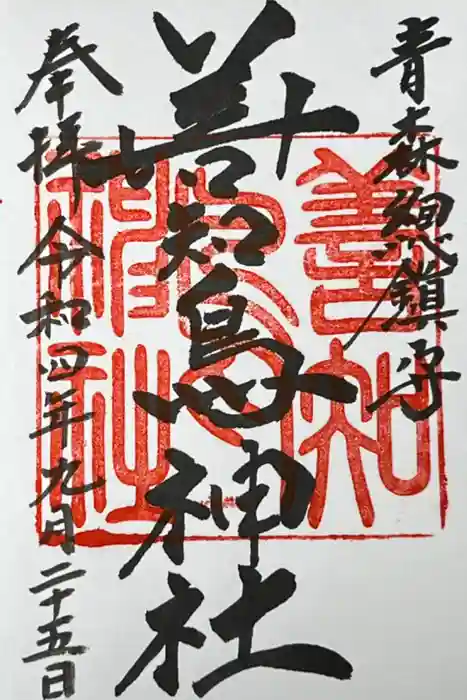 青森總鎮守
善知鳥神社
奉拝令和四年九月二十五日
善知
鳥
神社